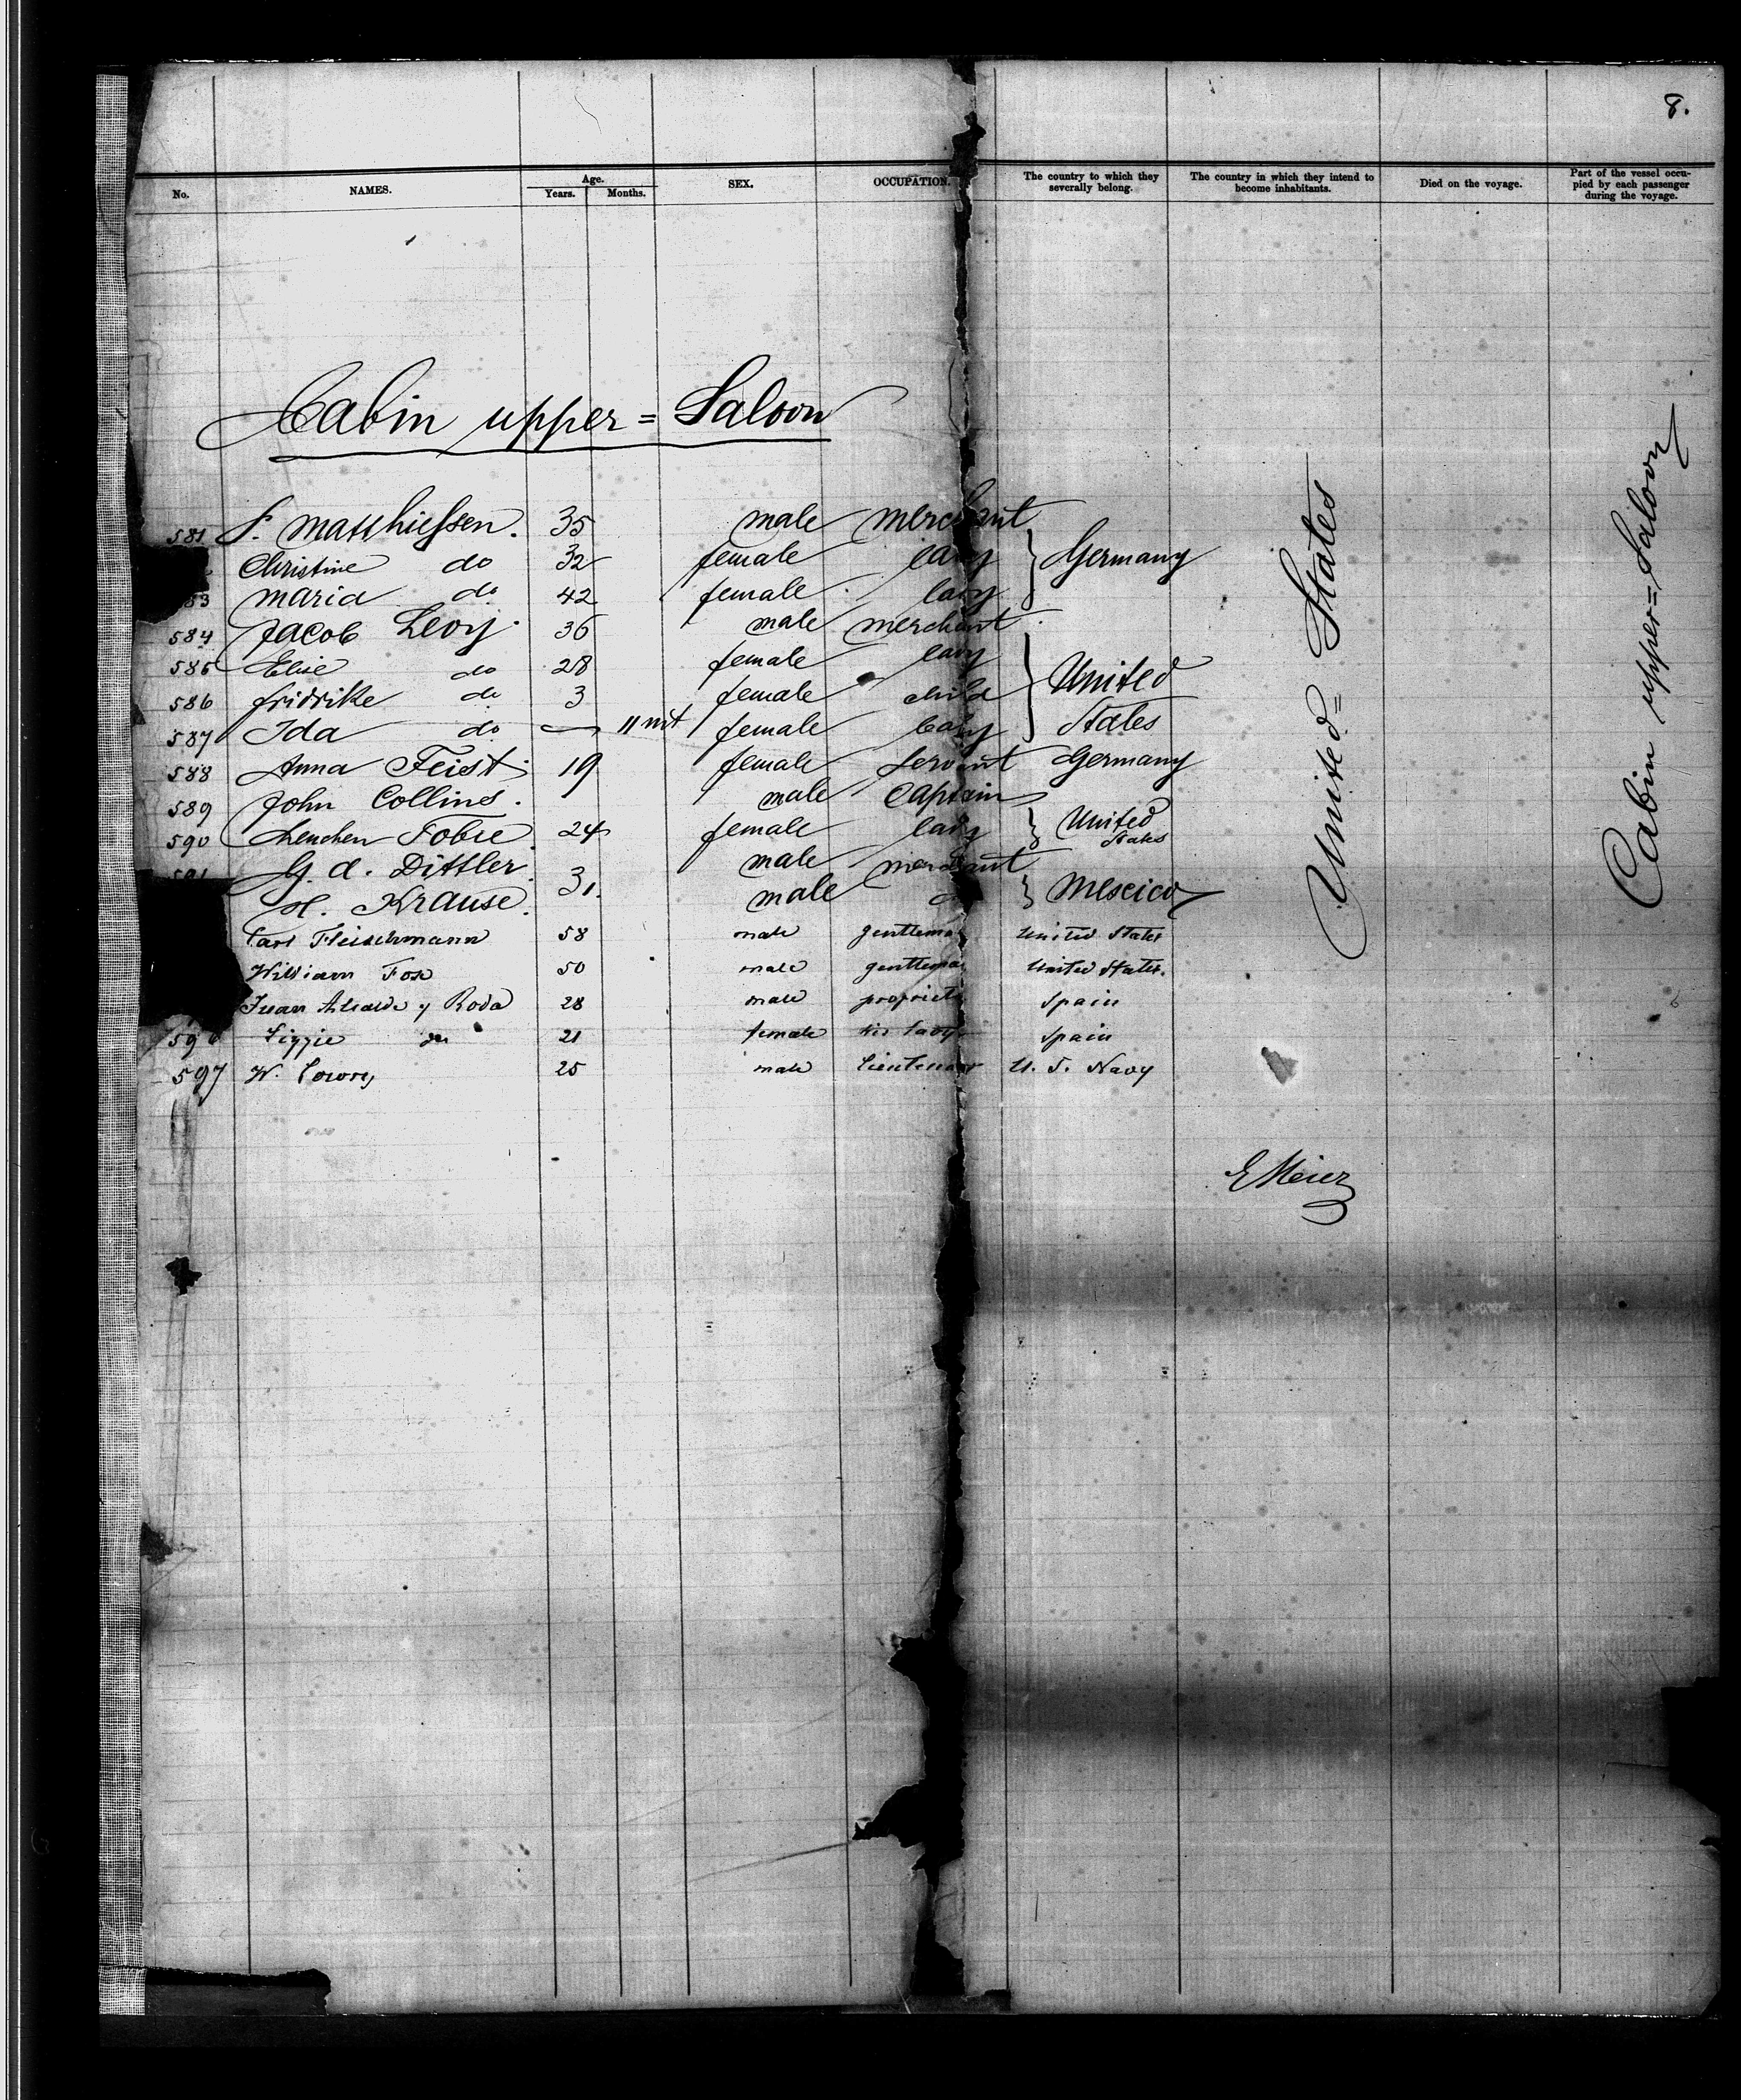 8.
No. NAMES. Age. Years. Months. SEX. OCCUPATION. The country to which they severally belong. The country in which they intend to become inhabitants. Died on the voyage. Part of the vessel occupied by each passenger during the voyage.
Cabin upper = Saloon
581 F. Matthiessen. 35 male merchant
Christine do 32 female lady Germany
83 Maria do 42 female lady
584 Jacob Levy. 36 male merchant
585 Elise do 28 female lady
586 Fridrike do 3 female child United
587 Ida do — 11 mt female baby States
588 Anna Feist. 19 female servant Germany
589 John Collins. male Captain
590 Lenchen Tobie 24 female lady United States
591 G. A. Dittler. male merchant
H. Krause. 31. male Mexico
Carl Fleischmann 58 male gentleman United States
William Fox 50 male gentleman United States.
Juan y Roda 28 male Spain
596 Lizzie do 21 female his lady Spain
597 W. 25 male Lieutenant U. S. Navy
United = States
Cabin upper = Saloon
E Meier